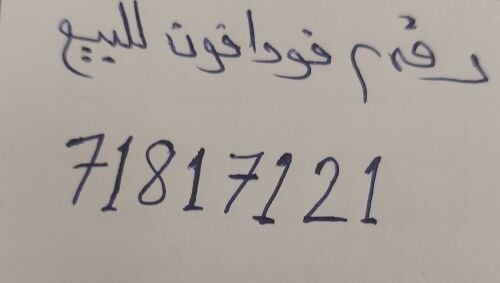 رقم فودافون للبيع
71817121